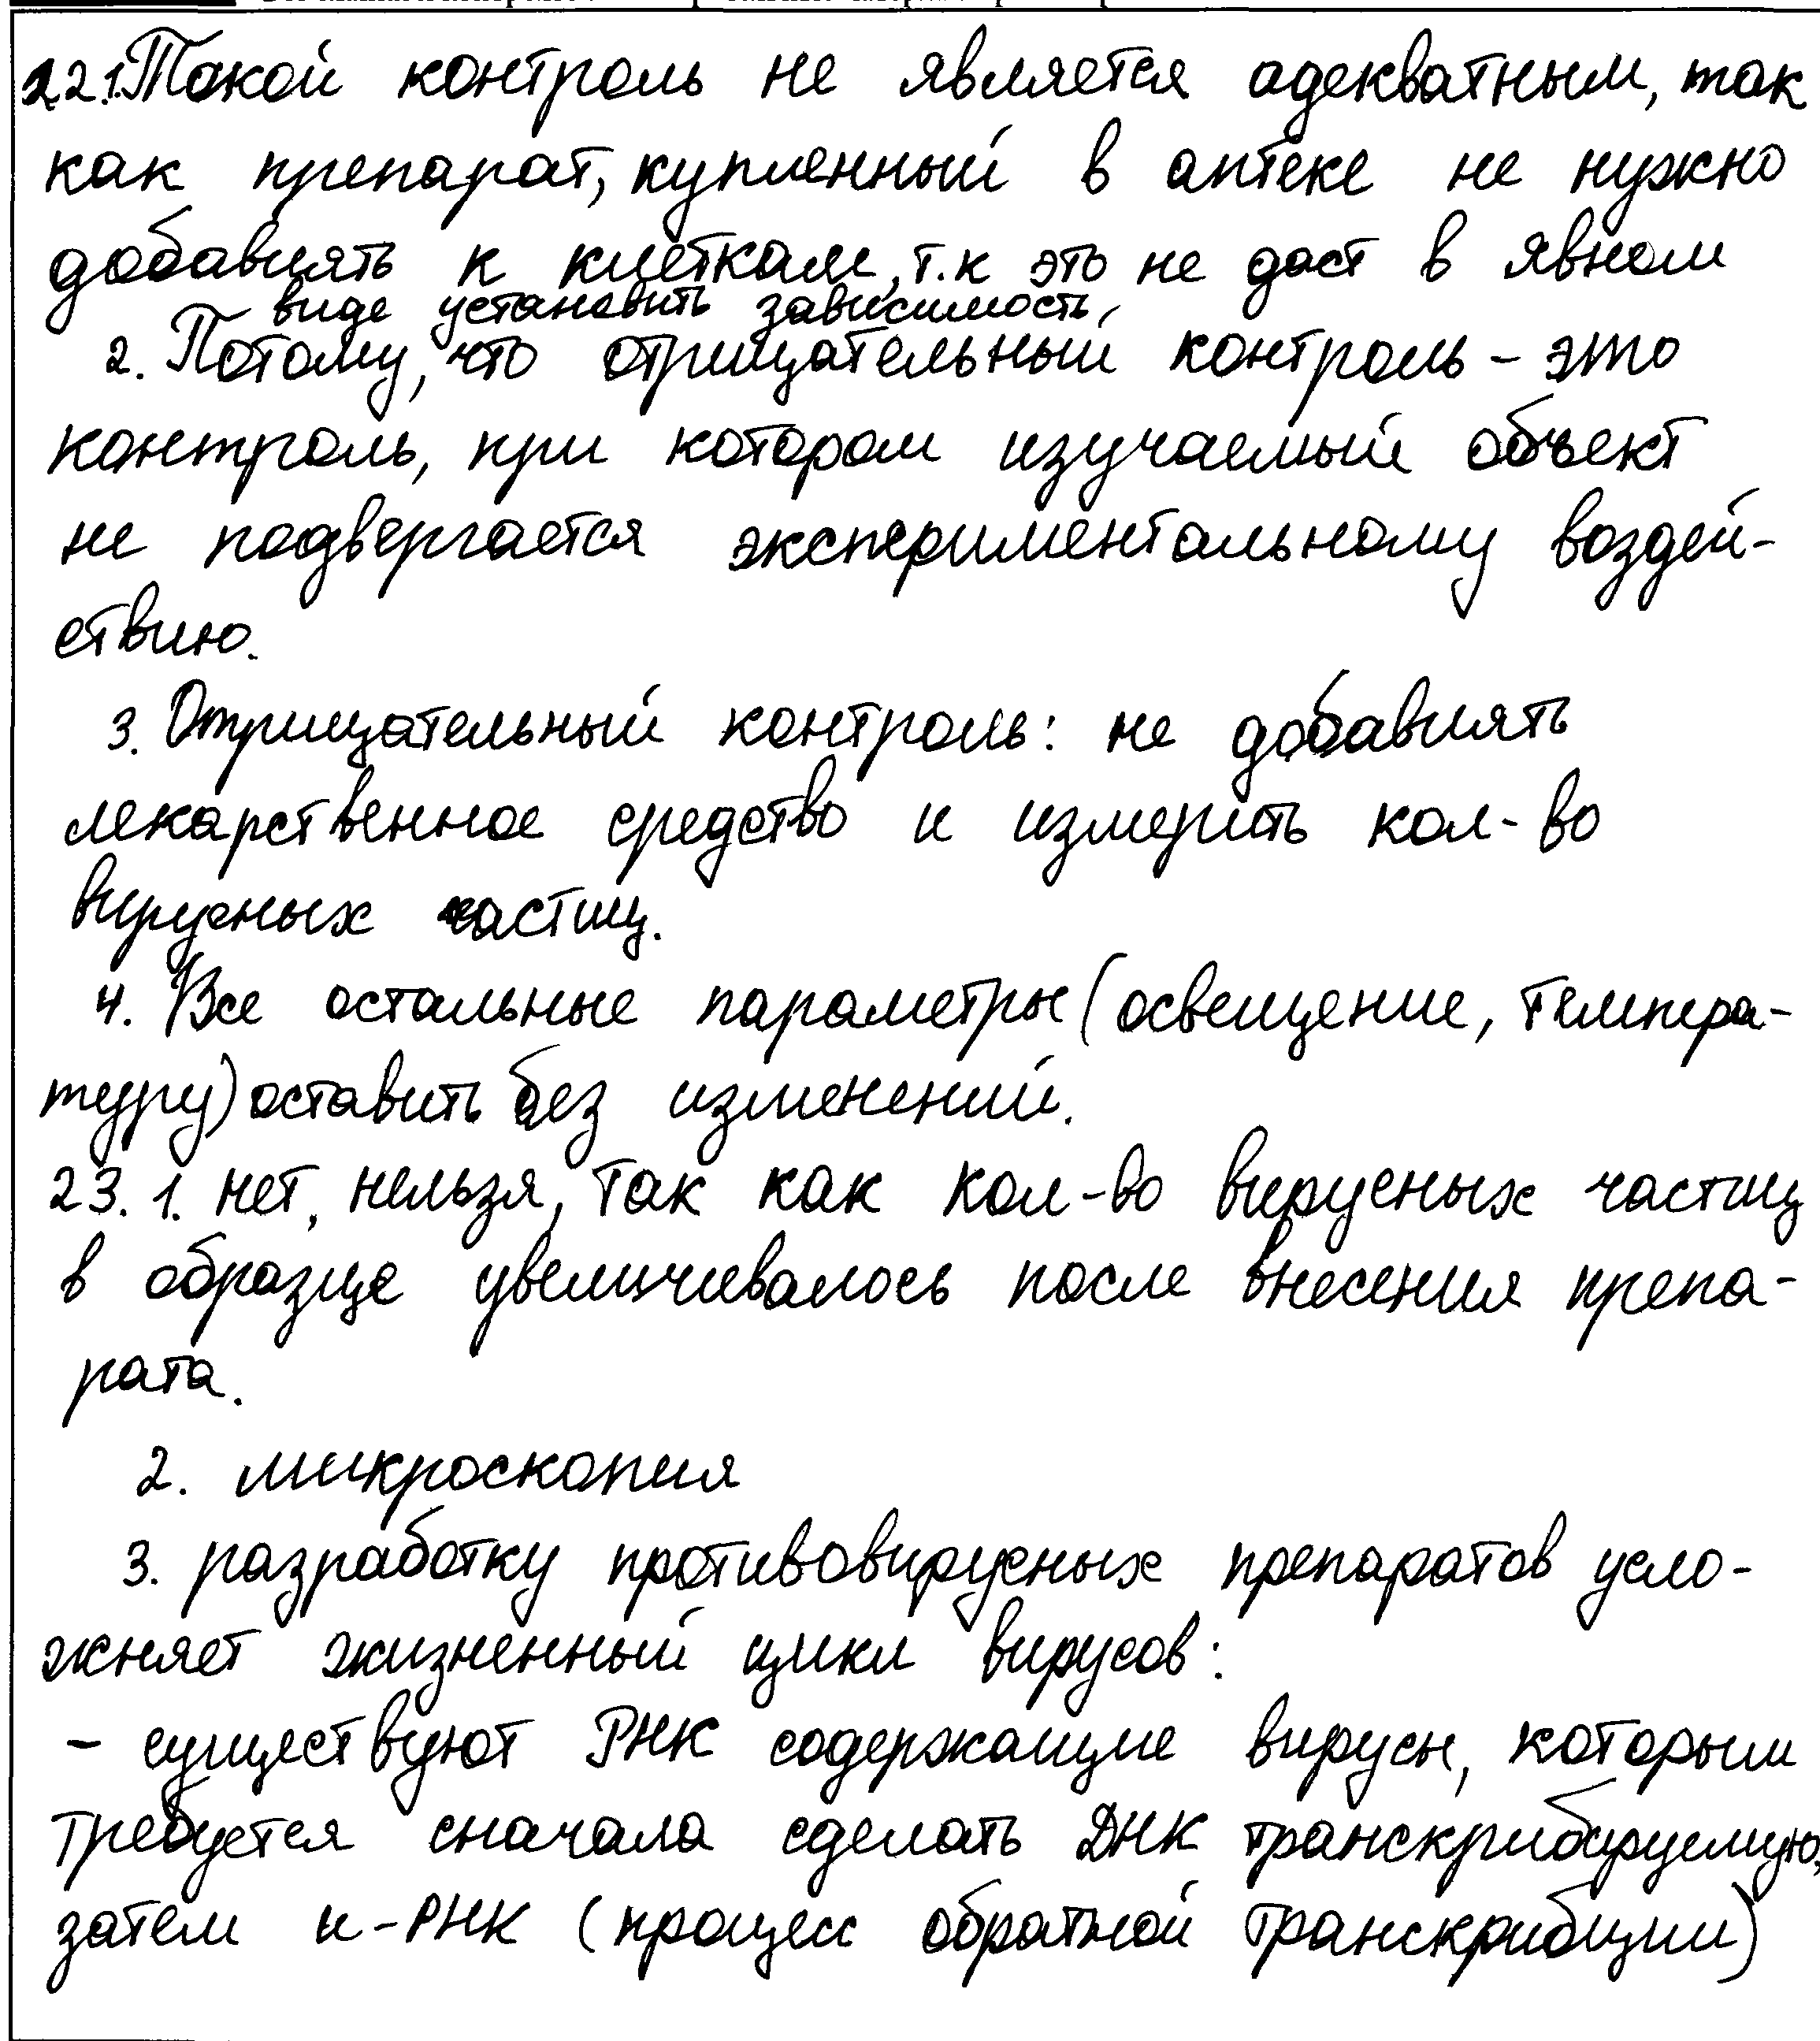 22.1.Такой контроль не является адекватным, так
как препарат, купленный в аптеке не нужно
добавлять к клеткам, т.к это не даст в явном
виде установить зависимость
2. Потому, что отрицательный контроль - это
контроль, при котором изучаемый объект
не подвергается экспериментальному воздей-
ствию.
3. Отрицательный контроль: не добавлять
лекарственное средство и измерить кол-во
вирусных частиц.
4. Все остальные параметры (освещение, темпера-
туру) оставить без изменений.
23. 1. нет, нельзя, так как кол-во вирусных частиц
в образце увеличивалось после внесения препа-
рата.
2. микроскопия
3. разработку противовирусных препаратов усло-
жняет жизненный цикл вирусов:
- существуют РНК содержащие вирусы, которым
требуется сначала сделать ДНК транскрибируемую,
затем и-РНК (процесс обратной транскрибции)